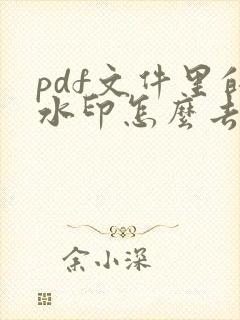 pdf文件里的
水印怎么去
余小深